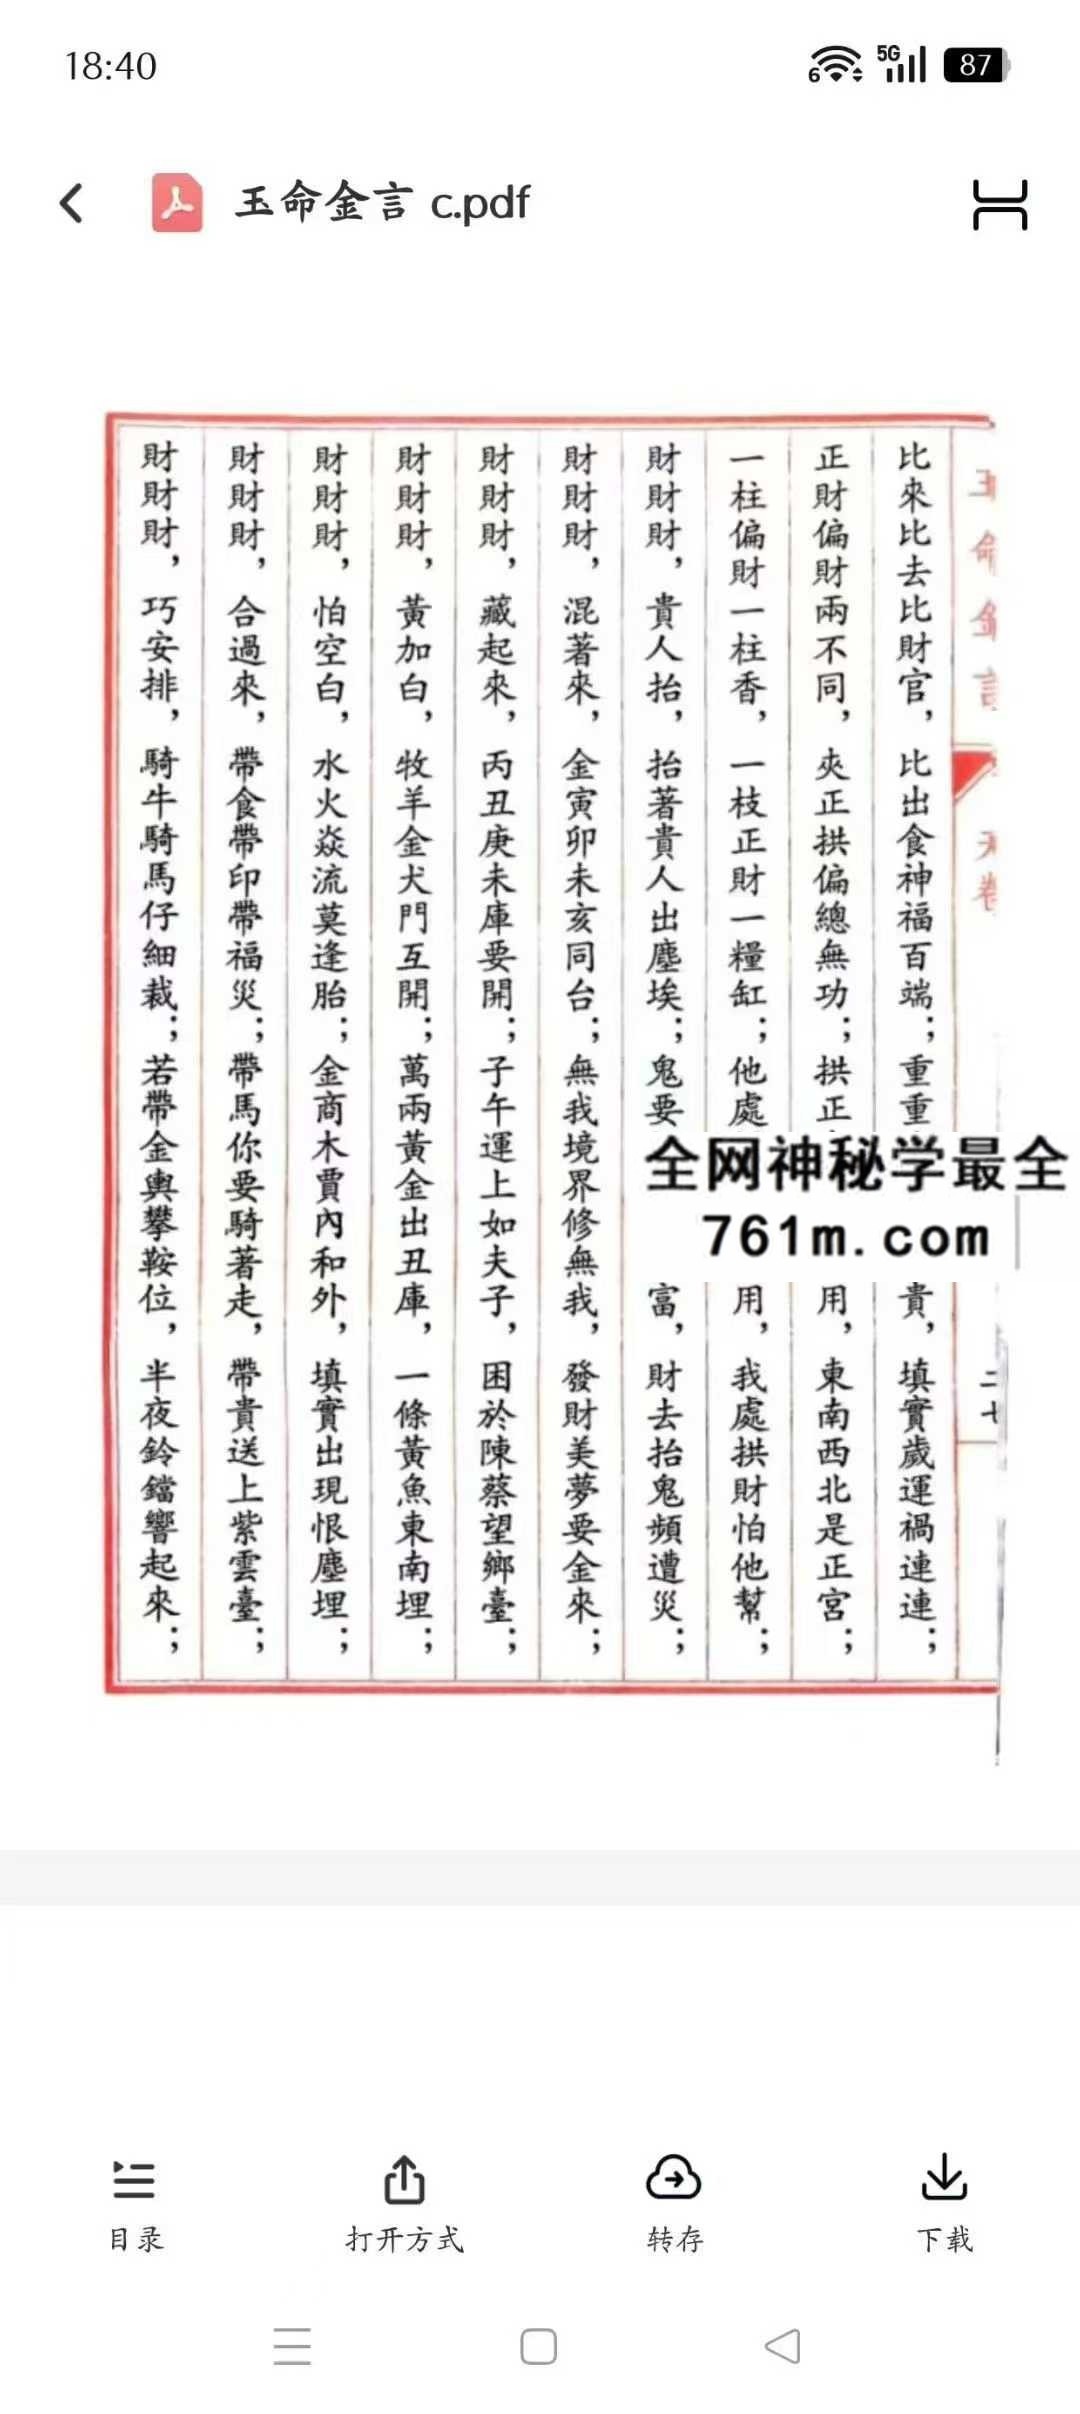 18:40
6 5G 87
玉命金言 c.pdf
玉命金言
天卷
二七
比來比去比財官，比出食神福百端；重重貴，填實歲運禍連連；
正財偏財兩不同，夾正拱偏總無功；拱正用，東南西北是正宮；
一柱偏財一柱香，一枝正財一糧缸；他處用，我處拱財怕他幫；
財財財，貴人抬，抬著貴人出塵埃；鬼要富，財去抬鬼頻遭災；
財財財，混著來，金寅卯未亥同台；無我境界修無我，發財美夢要金來；
財財財，藏起來，丙丑庚未庫要開；子午運上如夫子，困於陳蔡望鄉臺；
財財財，黃加白，牧羊金犬門互開；萬兩黃金出丑庫，一條黃魚東南埋；
財財財，怕空白，水火焱流莫逢胎；金商木賈內和外，填實出現恨塵埋；
財財財，合過來，帶食帶印帶福災；帶馬你要騎著走，帶貴送上紫雲臺；
財財財，巧安排，騎牛騎馬仔細裁；若帶金輿攀鞍位，半夜鈴鐺響起來；
全网神秘学最全
761m.com
目录
打开方式
转存
下载